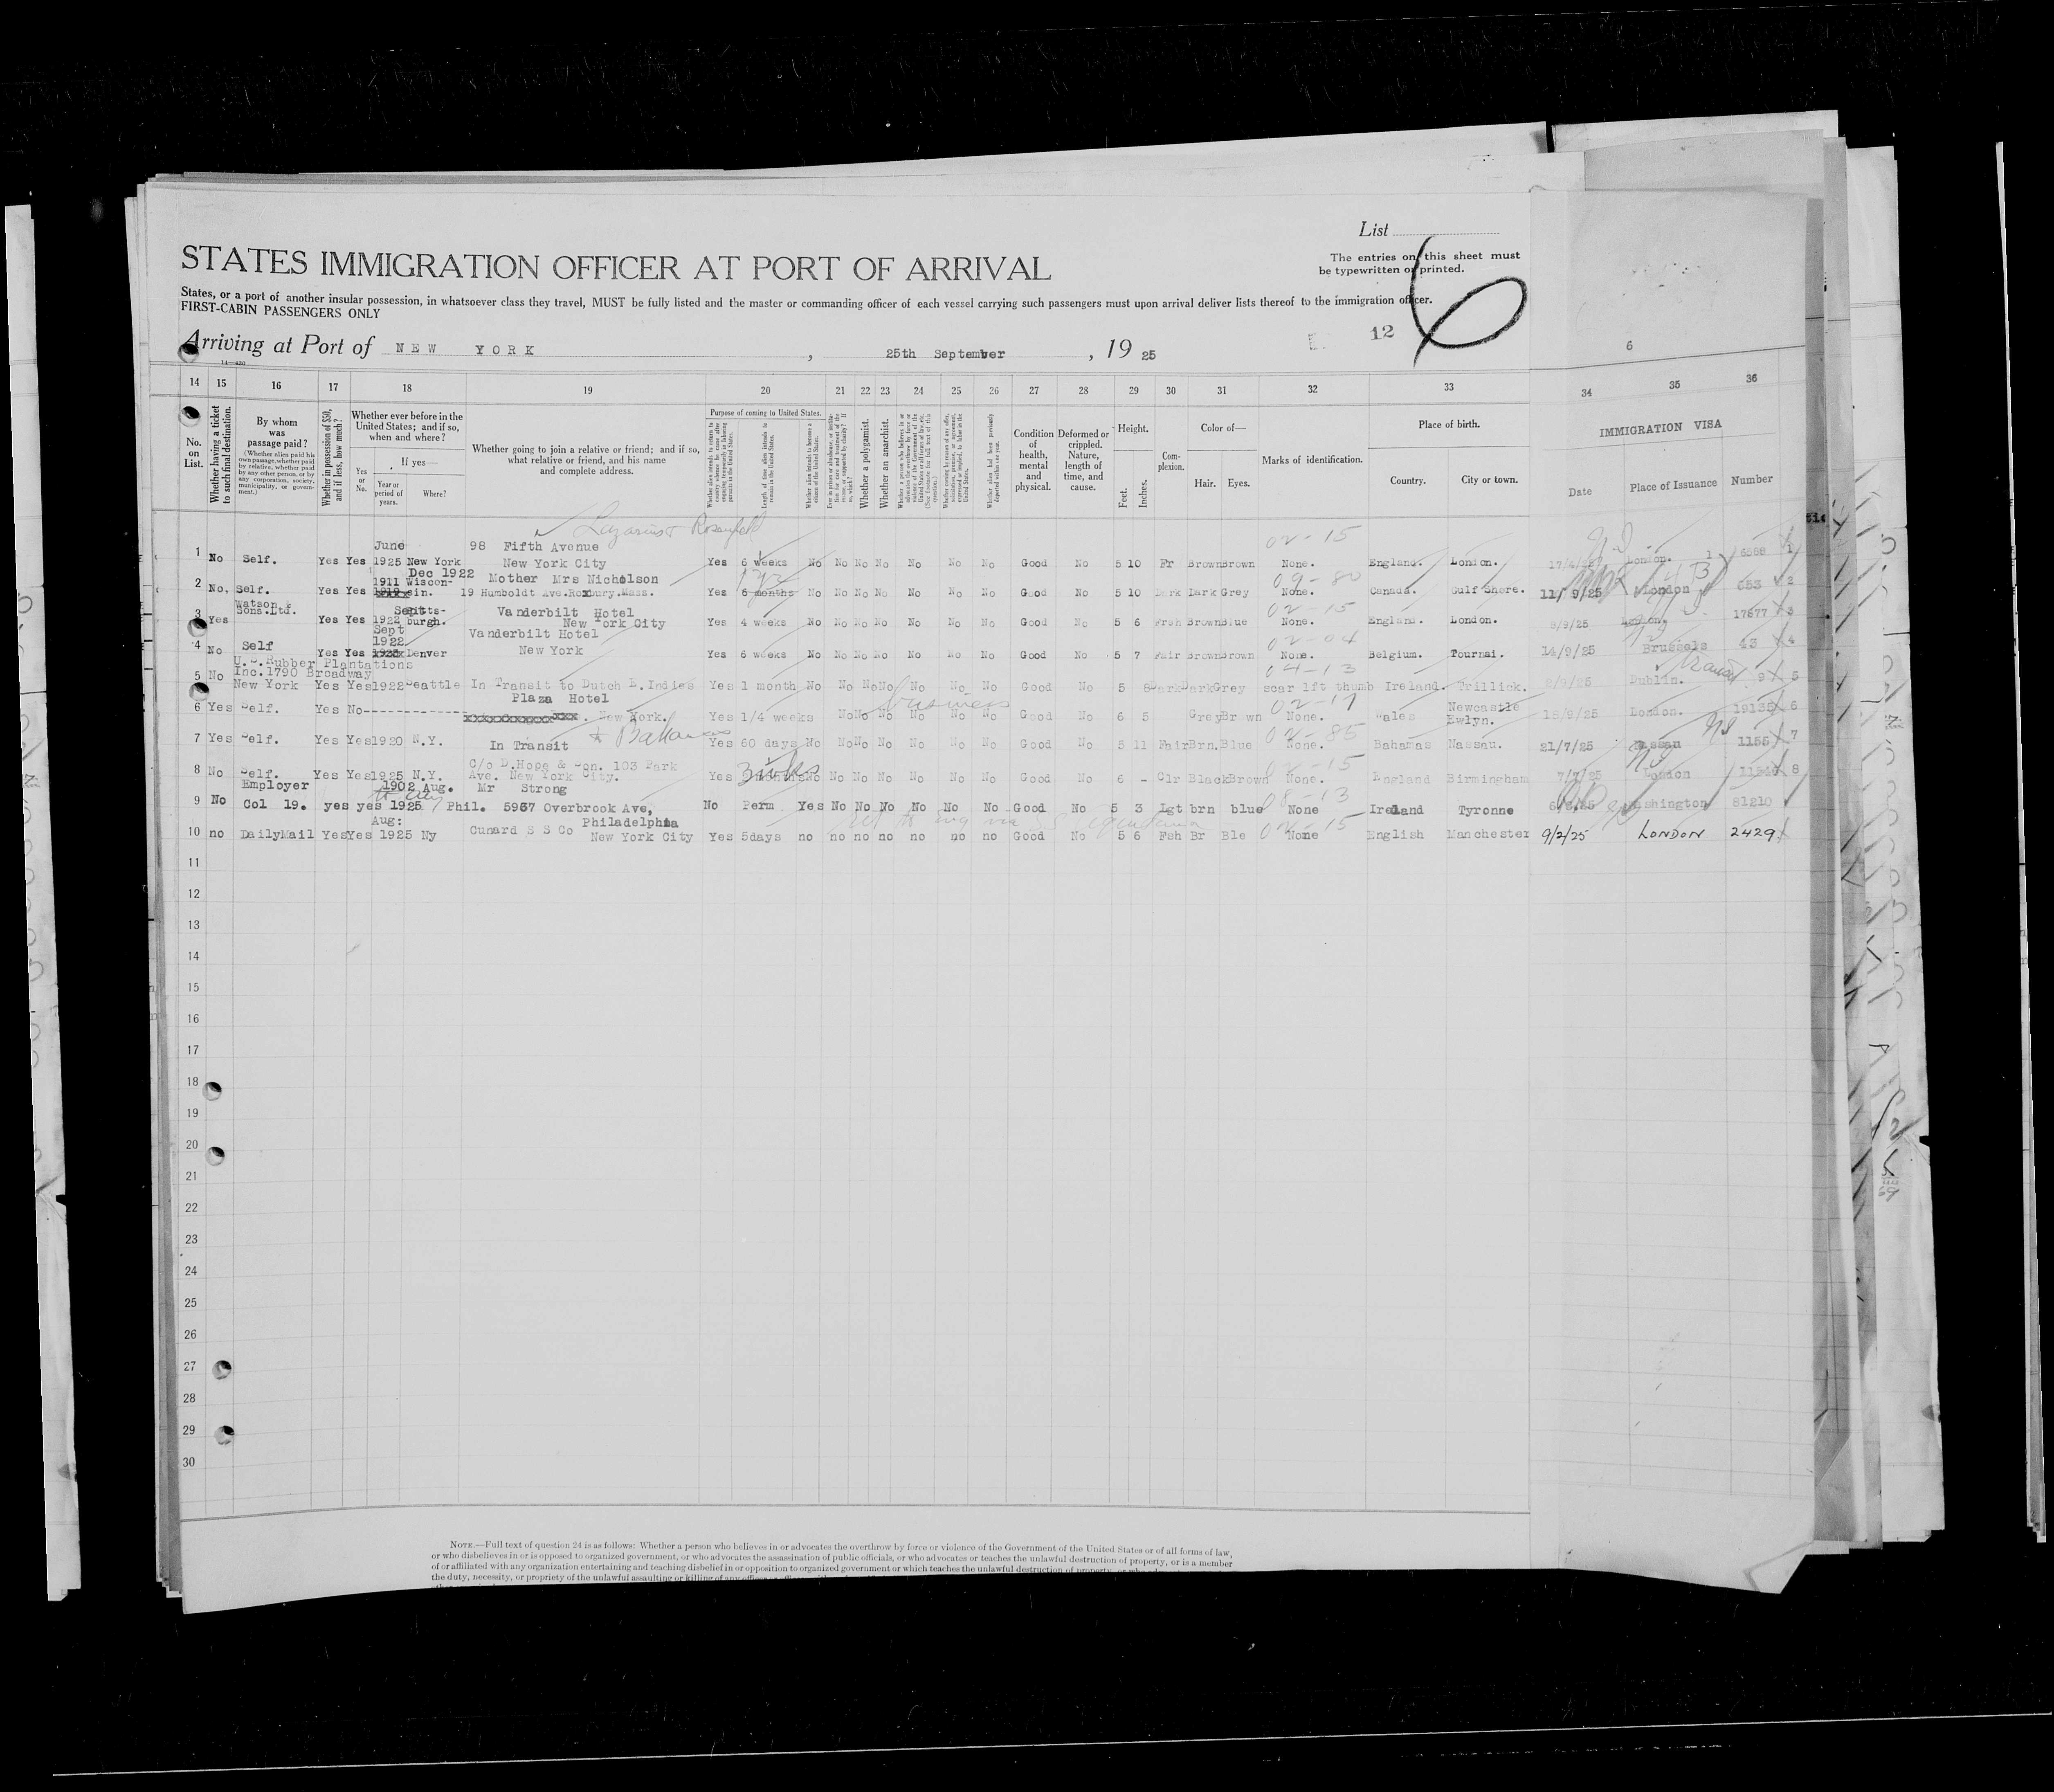 List
The entries on this sheet must
be typewritten or printed.
6
STATES IMMIGRATION OFFICER AT PORT OF ARRIVAL
States, or a port of another insular possession, in whatsoever class they travel, MUST be fully listed and the master or commanding officer of each vessel carrying such passengers must upon arrival deliver lists thereof to the immigration officer.
FIRST-CABIN PASSENGERS ONLY
12
Arriving at Port of NEW YORK, 25th September, 19 25
6
14 15 16 17 18 19 20 21 22 23 24 25 26 27 28 29 30 31 32 33 34 35 36
No. on List.
Whether having a ticket to such final destination.
By whom was passage paid?
(Whether alien paid his own passage, whether paid by relative, whether paid by any other person, or by any corporation, society, municipality, or government.)
Whether in possession of $50, and if less, how much?
Whether ever before in the United States; and if so, when and where?
Yes or No.
If yes—
Year or period of years.
Where?
Whether going to join a relative or friend; and if so, what relative or friend, and his name and complete address.
Purpose of coming to United States.
Length of time alien intends to remain in the United States.
Whether alien intends to become a citizen of the United States.
Whether a polygamist.
Whether an anarchist.
Condition of health, mental and physical.
Deformed or crippled. Nature, length of time, and cause.
Height.
Feet.
Inches.
Complexion.
Color of—
Hair.
Eyes.
Marks of identification.
Place of birth.
Country.
City or town.
IMMIGRATION VISA
Date
Place of Issuance
Number
Lazarus & Rosenfeld
02-15
June 98 Fifth Avenue
1 No Self. Yes Yes 1925 New York New York City Yes 6 weeks No No No No No No No Good No 5 10 Fr Brown Brown None. England. London. London. 6588 1
Dec 1922 Mother Mrs Nicholson 09-80
2 No. Self. Yes Yes 1911 Wisconsin. 19 Humboldt Ave.Roxbury.Mass. Yes 6 months No No No No No No No Good No 5 10 Dark Dark Grey None. Canada. Gulf Shore. 11/9/25 London 653 2
Watson & Sons.Ltd. Vanderbilt Hotel 02-15
3 Yes Yes Yes 1922 Pittsburgh. New York City Yes 4 weeks No No No No No No No Good No 5 6 Frsh Brown Blue None. England. London. 8/9/25 London. 17677 3
Sept 1922 Vanderbilt Hotel 02-04
4 No Self Yes Yes Denver New York Yes 6 weeks No No No No No No No Good No 5 7 Fair Brown Brown None. Belgium. Tournai. 14/9/25 Brussels 43 4
U.S.Rubber Plantations
Inc.1790 Broadway 04-13 Transit
5 No New York Yes Yes 1922 Seattle In Transit to Dutch E.Indies Yes 1 month No No No No No No No Good No 5 8 Dark Dark Grey scar lft thumb Ireland. Trillick. Dublin. 9 5
Plaza Hotel business 02-17 Newcastle
6 Yes Self. Yes No------------- xxxxxxxxxxxxxxx. New York. Yes 1/4 weeks No No No No No No Good No 6 5 Grey Brown None. Wales Ewlyn. 15/9/25 London. 19135 6
to Bahamas 02-85
7 Yes Self. Yes Yes 1920 N.Y. In Transit Yes 60 days No No No No No No No Good No 5 11 Fair Brn. Blue None. Bahamas Nassau. 21/7/25 Nassau 1155 7
C/o D.Hope & Son. 103 Park 02-15
8 No Self. Yes Yes 1925 N.Y. Ave. New York City. Yes 3 wks No No No No No No No Good No 6 - Clr Black Brown None. England Birmingham 7/7/25 London 8
Employer 1902 Aug. Mr Strong 08-13
9 No Col 19. yes yes 1925 Phil. 5967 Overbrook Ave, Philadelphia No Perm Yes No No No No No No Good No 5 3 Lgt brn blue None Ireland Tyronne Washington 81210
Aug: Cunard S S Co 02-15
10 no DailyMail Yes Yes 1925 Ny New York City Yes 5days no no no no no no no Good No 5 6 Fsh Br Ble None English Manchester 9/2/25 LONDON 2429
11
12
13
14
15
16
17
18
19
20
21
22
23
24
25
26
27
28
29
30
NOTE.—Full text of question 24 is as follows: Whether a person who believes in or advocates the overthrow by force or violence of the Government of the United States or of all forms of law,
or who disbelieves in or is opposed to organized government, or who advocates the assassination of public officials, or who advocates or teaches the unlawful destruction of property, or is a member
of or affiliated with any organization entertaining and teaching disbelief in or opposition to organized government or which teaches the unlawful destruction of property, or who
the duty, necessity, or propriety of the unlawful assaulting or killing of any